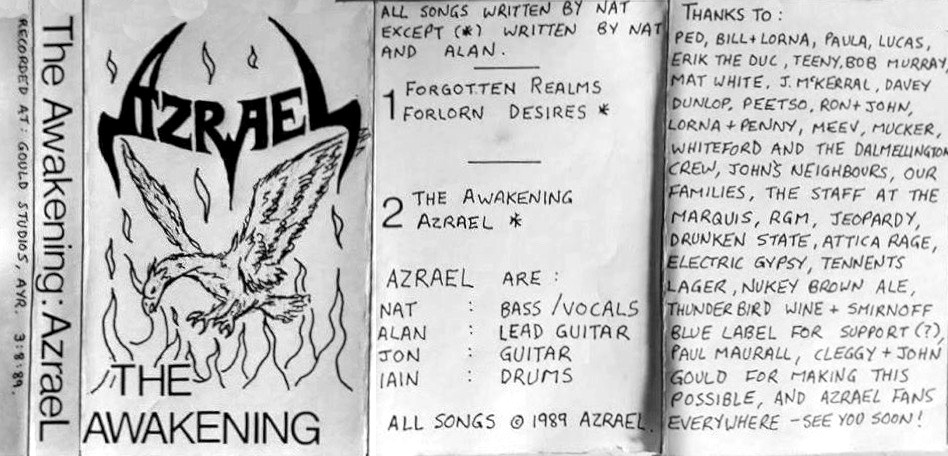 RECORDED AT: GOULD STUDIOS, AYR. 3:8:89.
The Awakening: AzraeL
AZRAEL
THE
AWAKENING
ALL SONGS WRITTEN BY NAT
EXCEPT (*) WRITTEN BY NAT
AND ALAN.
1 FORGOTTEN REALMS
FORLORN DESIRES *
2 THE AWAKENING
AZRAEL *
AZRAEL ARE :
NAT : BASS / VOCALS
ALAN : LEAD GUITAR
JON : GUITAR
IAIN : DRUMS
ALL SONGS © 1989 AZRAEL.
THANKS TO :
PED, BILL + LORNA, PAULA, LUCAS,
ERIK THE DUC, TEENY, BOB MURRAY,
MAT WHITE, J. McKERRAL, DAVEY
DUNLOP, PEETSO, RON + JOHN,
LORNA + PENNY, MEEV, MUCKER,
WHITEFORD AND THE DALMELLINGTON
CREW, JOHN'S NEIGHBOURS, OUR
FAMILIES, THE STAFF AT THE
MARQUIS, RGM, JEOPARDY,
DRUNKEN STATE, ATTICA RAGE,
ELECTRIC GYPSY, TENNENTS
LAGER, NUKEY BROWN ALE,
THUNDERBIRD WINE + SMIRNOFF
BLUE LABEL FOR SUPPORT (?),
PAUL MAURALL, CLEGGY + JOHN
GOULD FOR MAKING THIS
POSSIBLE, AND AZRAEL FANS
EVERYWHERE - SEE YOU SOON!